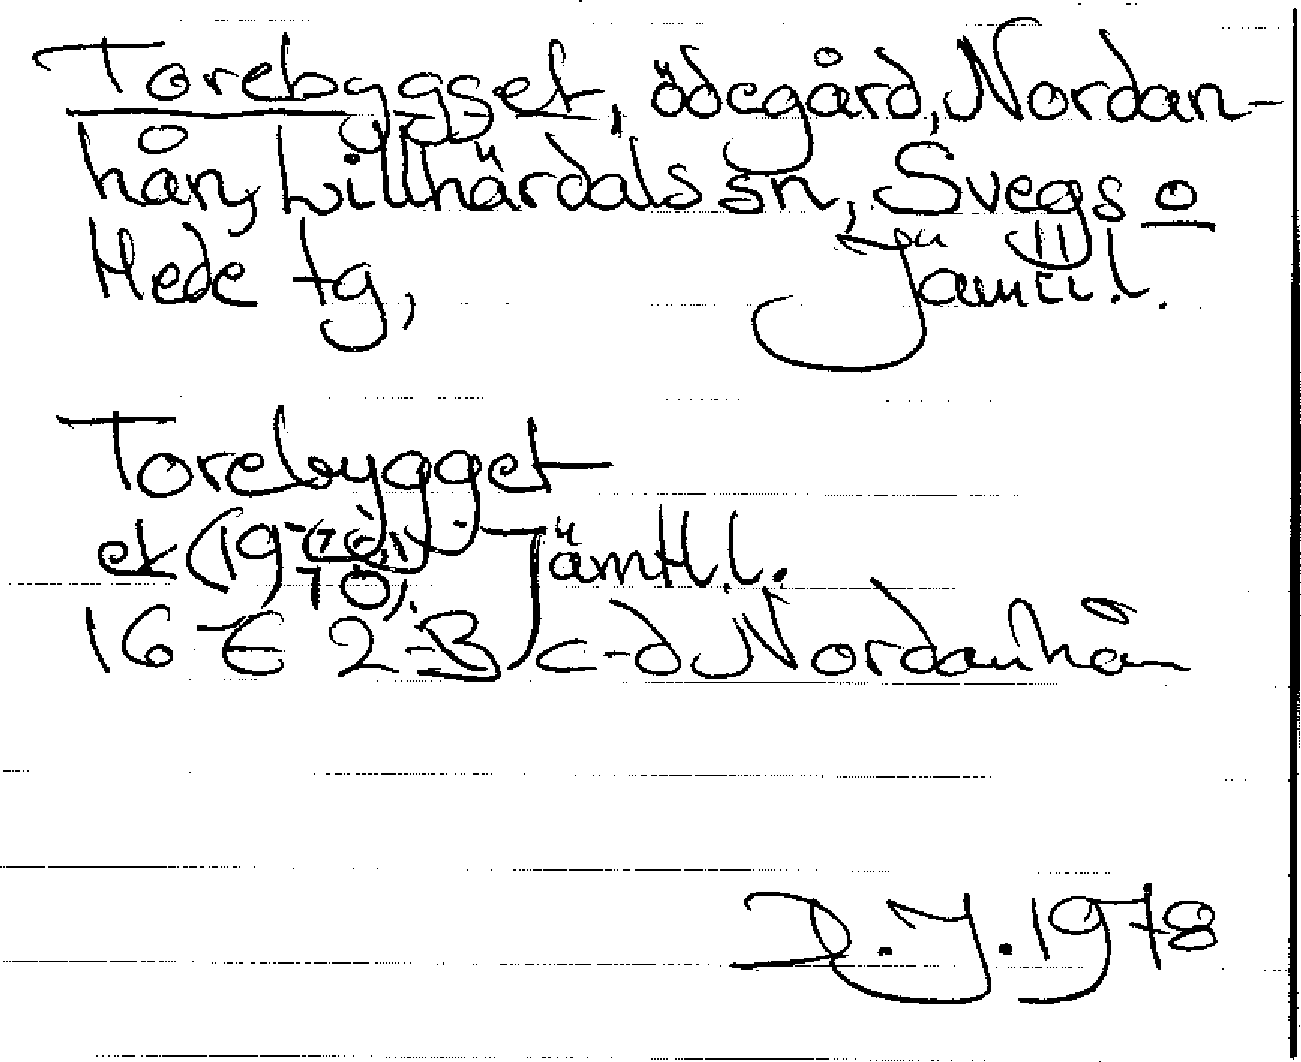 Torebygget, ödegård, Nordan-
hån, Lillhärdals sn, Svegs o
Hede tg, Jämtl.l.
Torebygget
ek (1970), Jämtl.l.
16 E 2-3 c-d Nordanhån
D.J. 1978